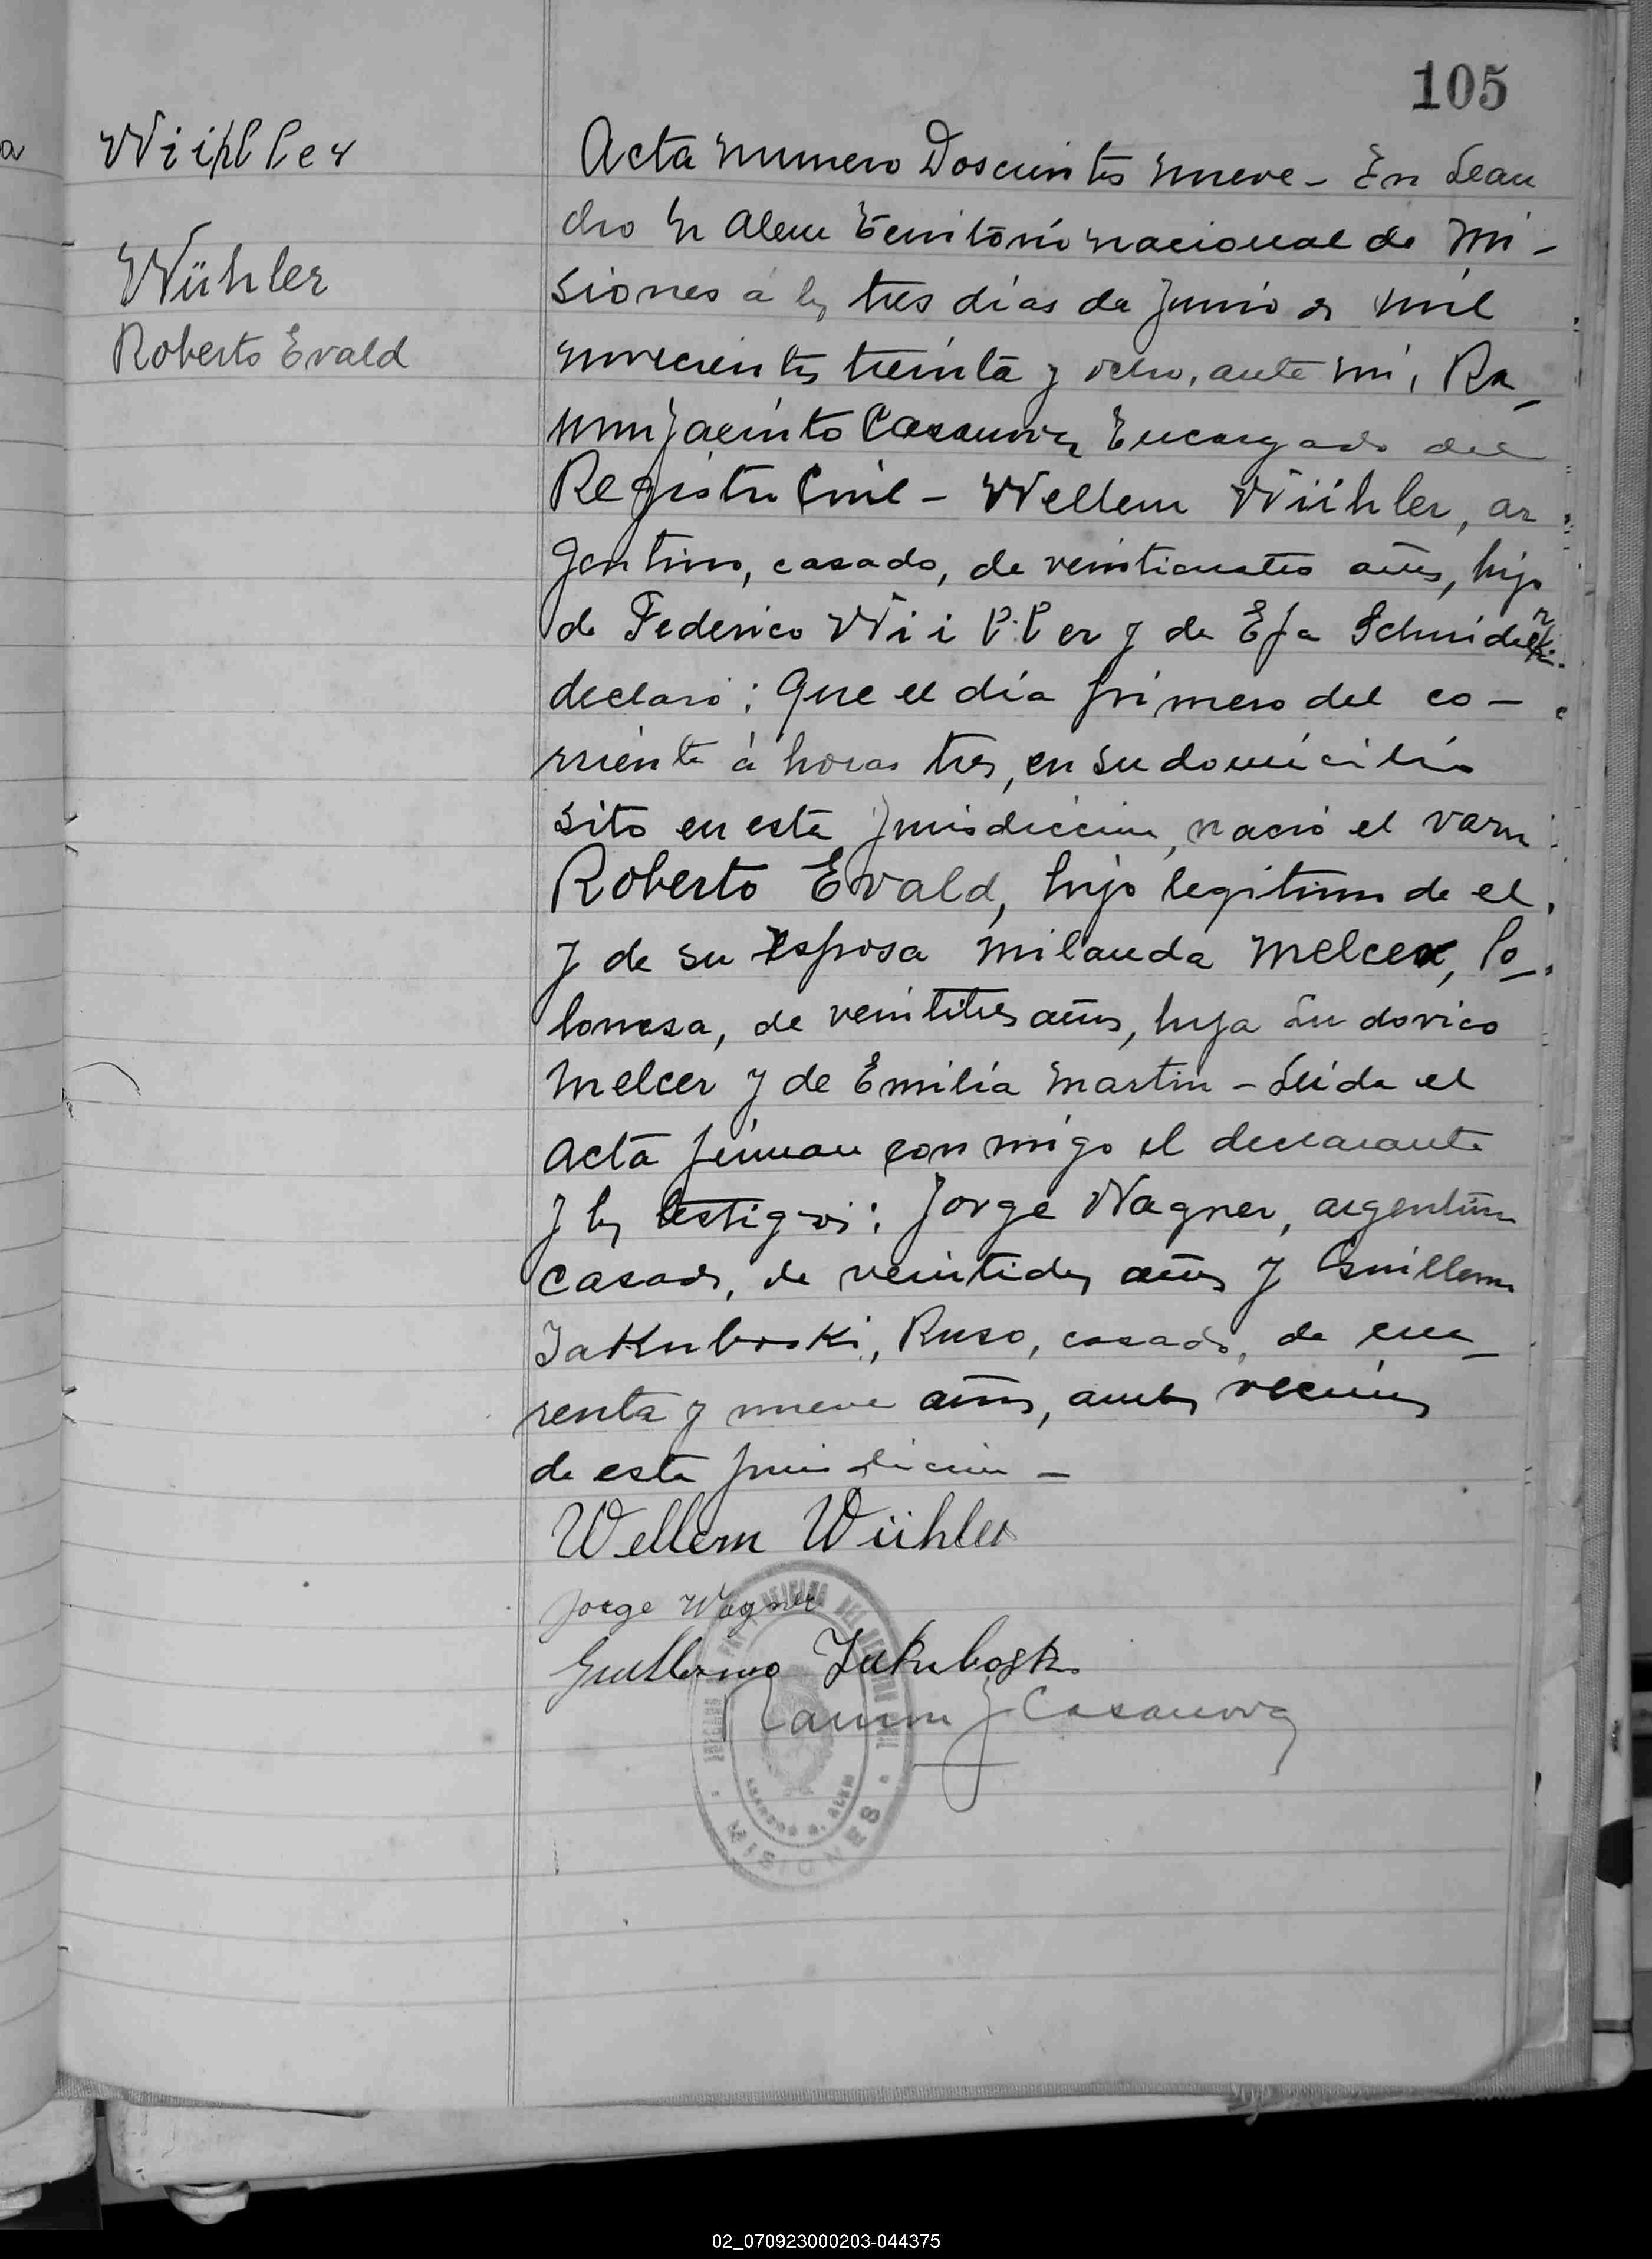 105
Wiihller
Wühler
Roberto Evald
Acta numero Doscientos nueve - En Lean
dro N Alem Territorio nacional de Mi -
siones á los tres dias de Junio de mil
novecientos treinta y ocho, ante mi, Ra_
mon Jacinto Casanova Encargado del
Registro Civil - Wellem Wiihler, ar
gentino, casado, de veinticuatro años, hijo
de Federico Wii er y de Efa
declaró: Que el día primero del co -
rriente á horas tres, en su domicilio
sito en esta Jurisdiccion, nació el varon
Roberto Evald, hijo legitimo de el
y de su esposa Milauda Melcer, Po_
lonesa, de veintitres años, hija Ludovico
Melcer y de Emilia Martin - Leida el
acta firman conmigo el declarante
y los testigos: Jorge Wagner, argentino
casado, de veintidos años y Guillermo
Jakuboski, Ruso, casado, de cua_
renta y nueve años, ambos vecinos
de esta Jurisdiccion -
Wellem Wiihler
Jorge Wagner
Guillermo Jakuboski
Ramon J Casanova
LEANDRO N. ALEM
MISIONES
02_070923000203-044375